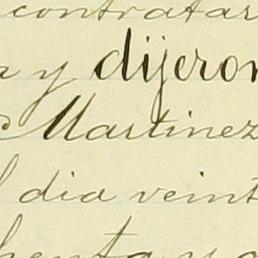 contratar
y dijeron
Martinez
dia veint